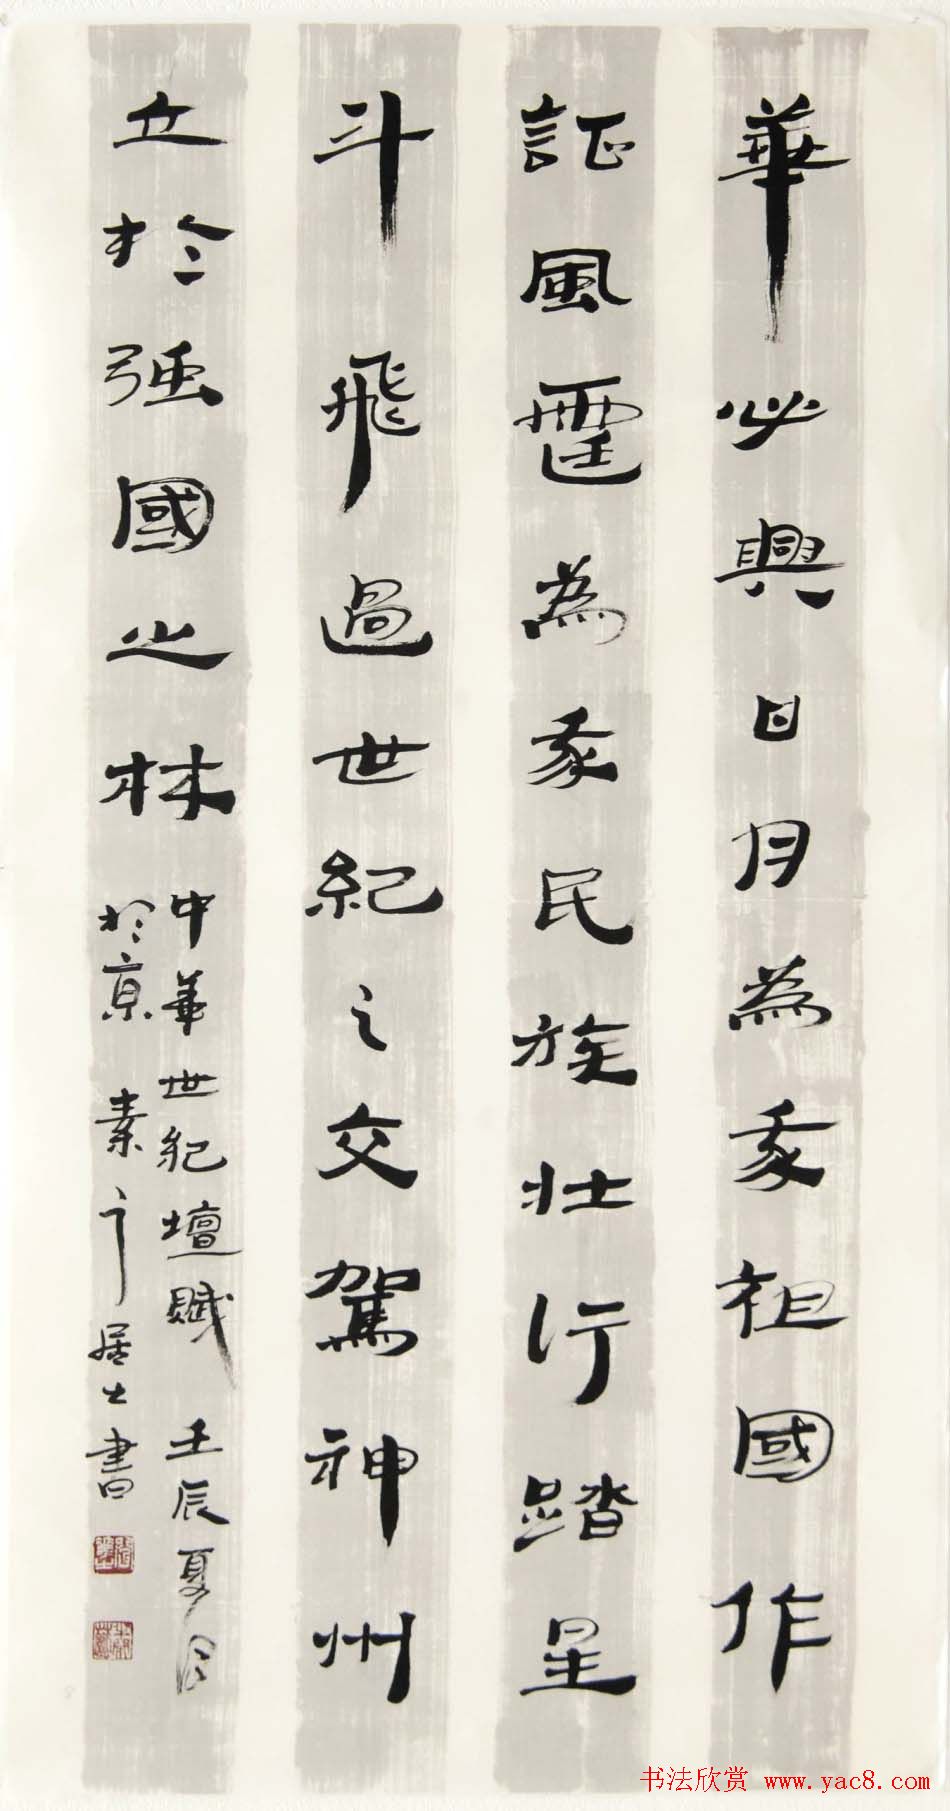 華必興日月為我祖國作
証風霆為我民族壯行踏星
斗飛過世紀之交駕神州
立於強國之林
中華世紀壇賦 壬辰夏日
於京 素之居士書
书法欣赏 www.yac8.com